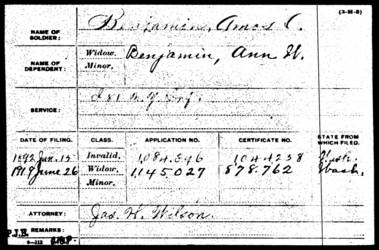 (3-18-8)
NAME OF SOLDIER: Benjamin, Amos C.
NAME OF DEPENDENT: Widow. Benjamin, Ann W.
Minor.
SERVICE: N.Y. Inf.
DATE OF FILING. CLASS. APPLICATION NO. CERTIFICATE NO. STATE FROM WHICH FILED.
1892 Jan. 15 Invalid. 1,084,846
1919 June 26 Widow. 1,145,027 878,762 Wash.
Minor.
ATTORNEY: Jas. H. Wilson
P.J.B. REMARKS: